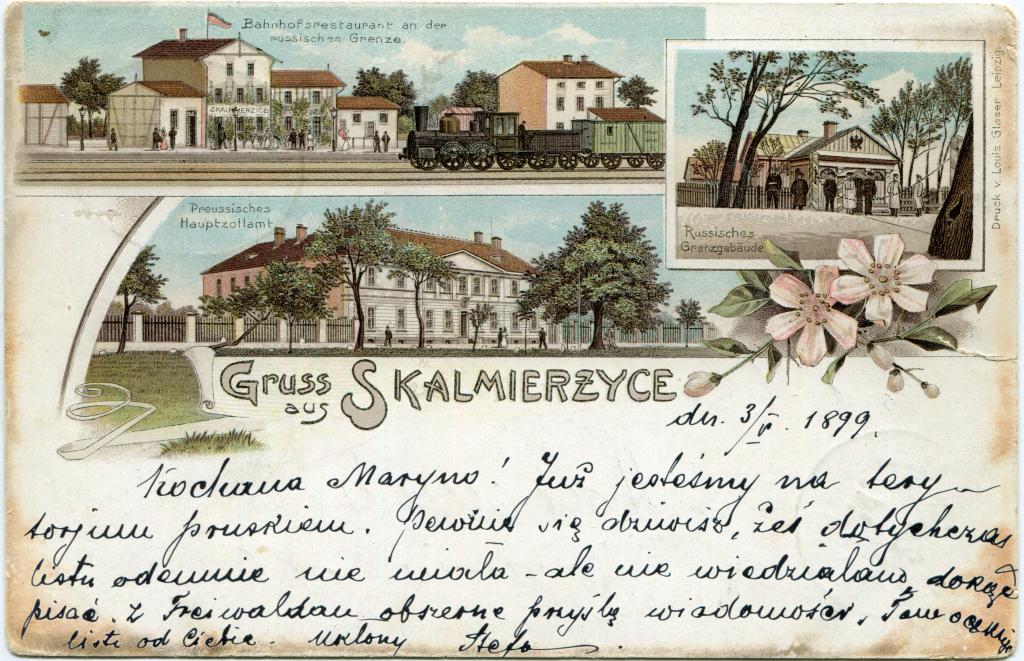 Bahnhofsrestaurant an der
russischen Grenze.
SKALMIERZYCE
Druck v. Louis Glaser Leipzig.
Preussisches
Hauptzollamt
Russisches
Grenzgebäude
Gruss
aus SKALMIERZYCE
dn. 3/V. 1899.
Kochana Maryno! Już jesteśmy na tery
torjum pruskiem. Pewnie się dziwisz, żeś dotychczas
listu odemnie nie miała - ale nie wiedziałam, dokąd
pisać. Z Freiwaldau obszerne przyślę wiadomości. Tam oczekuję
listu od Ciebie. Ukłony Stefa